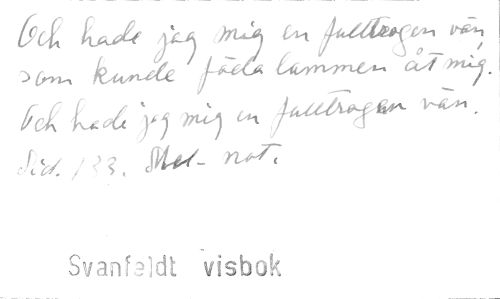 Och hade jag mig en fulltrogen vän
som kunde föda lammen åt mig.
Och hade jag mig en fulltrogen vän.
Sid. 133. Mel- not.
Svanfeldt visbok